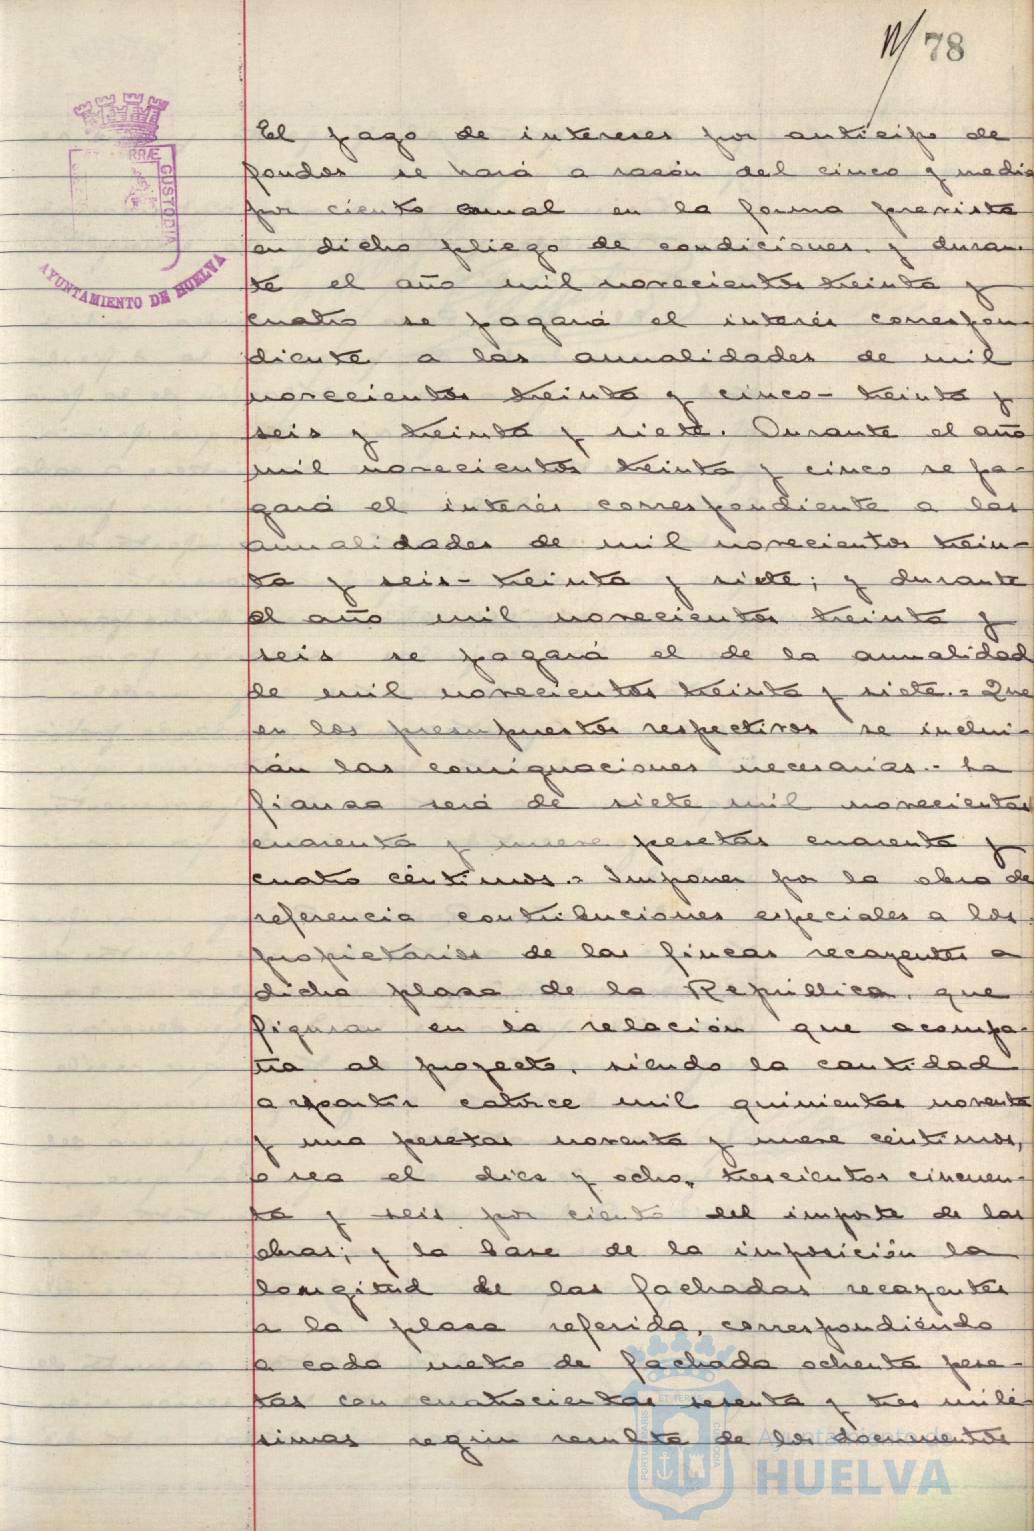 N/ 78
El pago de intereses por anticipo de
fondos se hará a razón del cinco y medio
por ciento anual en la forma prevista
en dicho pliego de condiciones, y duran-
te el año mil novecientos treinta y
cuatro se pagará el interés correspon-
diente a las anualidades de mil
novecientos treinta y cinco- treinta y
seis y treinta y siete. Durante el año
mil novecientos treinta y cinco se pa-
gará el interés correspondiente a las
anualidades de mil novecientos trein-
ta y seis- treinta y siete; y durante
el año mil novecientos treinta y
seis se pagará el de la anualidad
de mil novecientos treinta y siete.= Que
en los presupuestos respectivos se inclui-
rán las consignaciones necesarias.- La
fianza será de siete mil novecientas
cuarenta y nueve pesetas cuarenta y
cuatro céntimos.= Imponer por la obra de
referencia contribuciones especiales a los
propietarios de las fincas recayentes a
dicha plaza de la República, que
figuran en la relación que acompa-
ña al proyecto, siendo la cantidad
a repartir catorce mil quinientas noventa
y una pesetas noventa y nueve céntimos,
o sea el diez y ocho, trescientos cincuen-
ta y seis por ciento del importe de las
obras; y la base de la imposición la
longitud de las fachadas recayentes
a la plaza referida, correspondiendo
a cada metro de fachada ochenta pese-
tas con cuatrocientas sesenta y tres milé-
simas según resulta de los documentos
CUSTODIA
AYUNTAMIENTO DE HUELVA
Ayuntamiento de
HUELVA